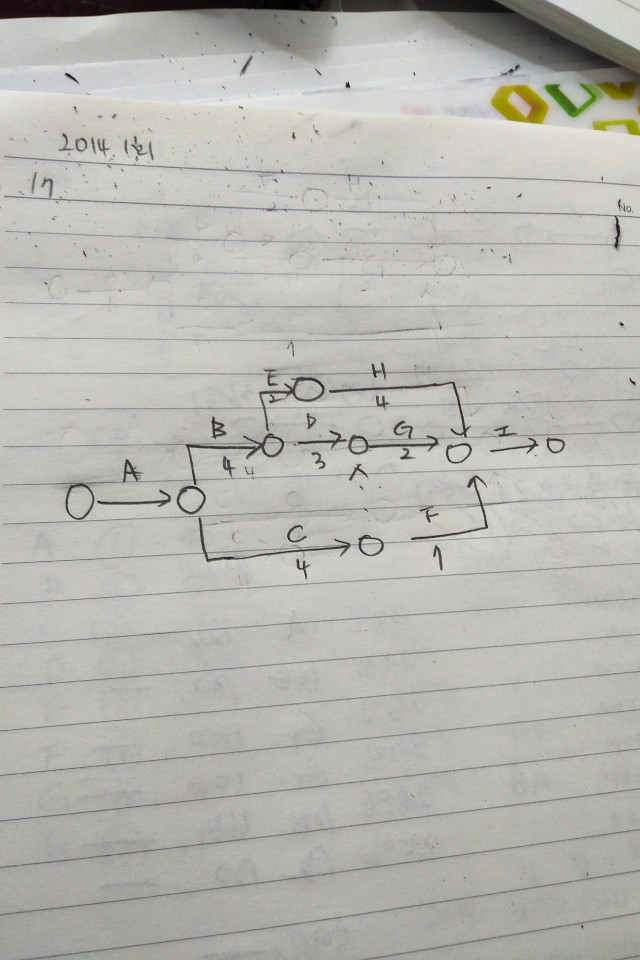 2014 1회
17
No.
E 2 H 4
B 4 D 3 G 2 I
A
C 4 F 1